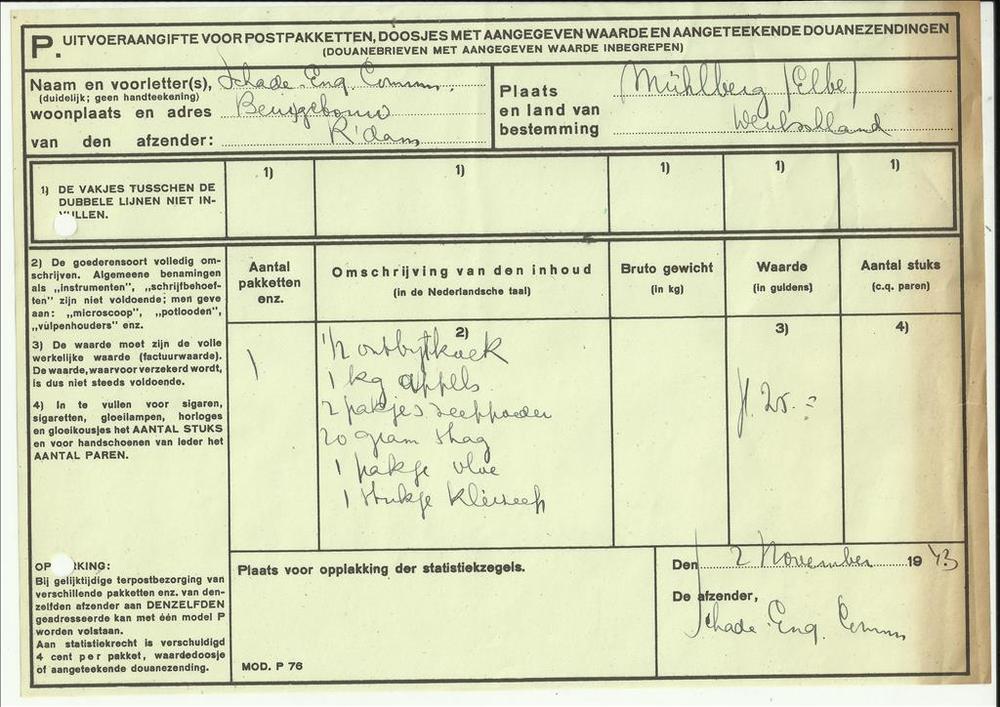 P. UITVOERAANGIFTE VOOR POSTPAKKETTEN, DOOSJES MET AANGEGEVEN WAARDE EN AANGETEEKENDE DOUANEZENDINGEN
(DOUANEBRIEVEN MET AANGEGEVEN WAARDE INBEGREPEN)
Naam en voorletter(s), Schade Enq. Comm.
(duidelijk; geen handteekening)
woonplaats en adres Beursgebouw
van den afzender: R'dam
Plaats
en land van
bestemming
Mühlberg (Elbe)
1) DE VAKJES TUSSCHEN DE
DUBBELE LIJNEN NIET IN-
VULLEN.
1) 1) 1) 1) 1)
2) De goederensoort volledig om-
schrijven. Algemeene benamingen
als „instrumenten", „schrijfbehoef-
ten" zijn niet voldoende; men geve
aan: „microscoop", „potlooden",
„vulpenhouders" enz.
3) De waarde moet zijn de volle
werkelijke waarde (factuurwaarde).
De waarde, waarvoor verzekerd wordt,
is dus niet steeds voldoende.
4) In te vullen voor sigaren,
sigaretten, gloeilampen, horloges
en gloeikousjes het AANTAL STUKS
en voor handschoenen van ieder het
AANTAL PAREN.
Aantal
pakketten
enz.
Omschrijving van den inhoud
(in de Nederlandsche taal)
Bruto gewicht
(in kg)
Waarde
(in guldens)
Aantal stuks
(c.q. paren)
2) 3) 4)
1
1/2 ontbijtkoek
1 kg appels
2 pakjes zeeppoeder
20 gram shag
1 pakje vloe
1 stukje kleizeep
fl. 25.=
OPMERKING:
Bij gelijktijdige terpostbezorging van
verschillende pakketten enz. van den-
zelfden afzender aan DENZELFDEN
geadresseerde kan met één model P
worden volstaan.
Aan statistiekrecht is verschuldigd
4 cent per pakket, waardedoosje
of aangeteekende douanezending.
Plaats voor opplakking der statistiekzegels.
MOD. P 76
Den 2 November 1943
De afzender,
Schade Enq. Comm